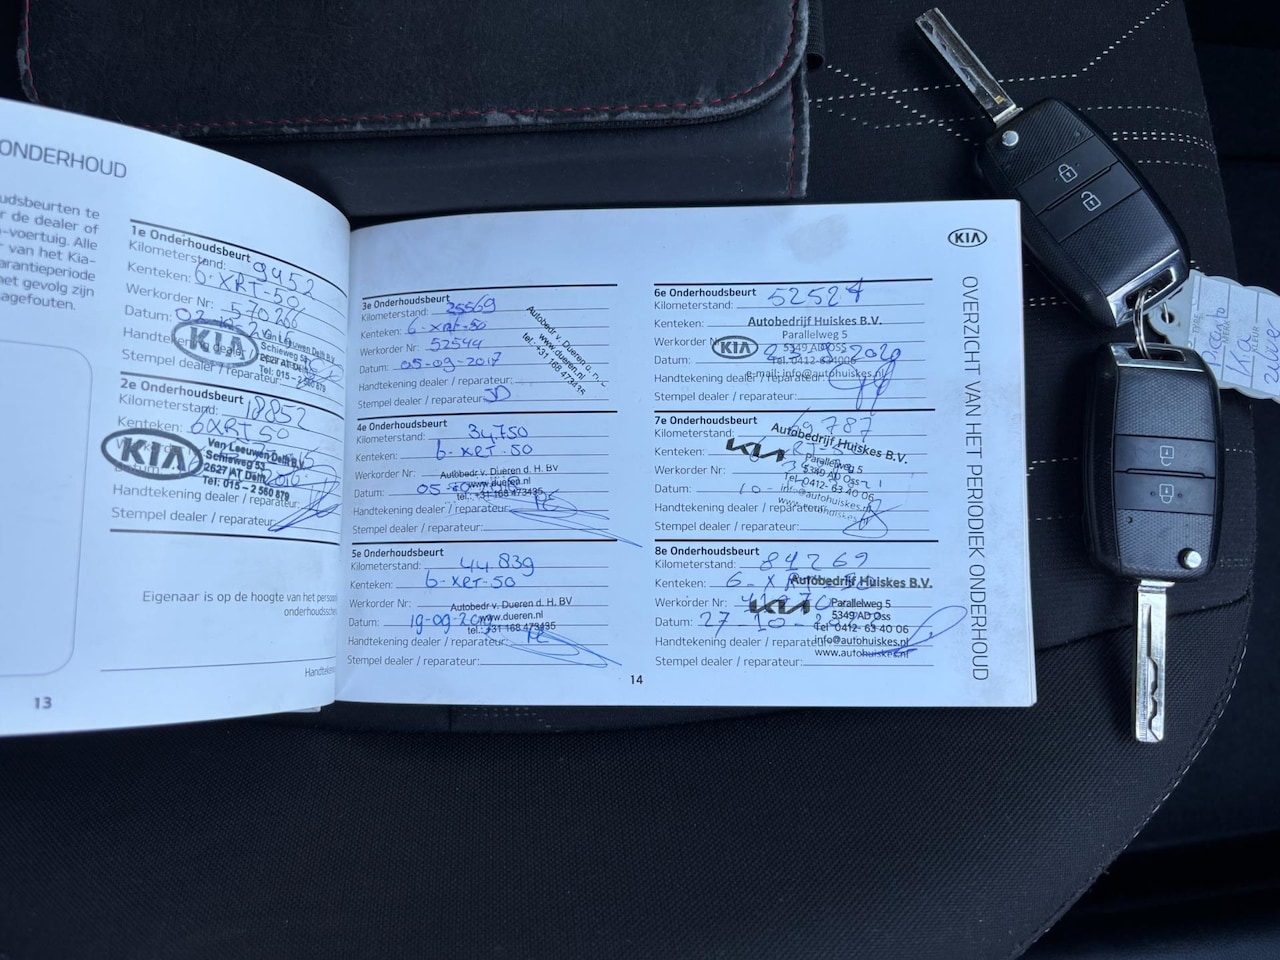 ONDERHOUD
udsbeurten te
r de dealer of
-voertuig. Alle
van het Kia-
arantieperiode
het gevolg zijn
agefouten.
1e Onderhoudsbeurt
Kilometerstand: 9452
Kenteken: 6-XRT-50
Werkorder Nr: 570266
Datum:
Handtekening dealer
Stempel dealer / reparateur:
KIA
Van Leeuwen Delft B.V.
Schieweg 53
2627 AT Delft
Tel: 015 - 2 560 879
2e Onderhoudsbeurt
Kilometerstand: 18852
Kenteken: 6XRT50
Datum: 2016
Handtekening dealer / reparateur:
Stempel dealer / reparateur:
KIA
Van Leeuwen Delft B.V.
Schieweg 53
2627 AT Delft
Tel: 015 - 2 560 879
Eigenaar is op de hoogte van het persoon
onderhoudssche
Handteken
13
3e Onderhoudsbeurt
Kilometerstand: 25569
Kenteken: 6-XRT-50
Werkorder Nr: 52544
Datum: 05-09-2017
Handtekening dealer / reparateur:
Stempel dealer / reparateur:
Autobedr v. Dueren
www.dueren.nl
tel.: +31 168 473435
4e Onderhoudsbeurt
Kilometerstand: 34750
Kenteken: 6-XRT-50
Werkorder Nr:
Datum: 05
Handtekening dealer / reparateur:
Stempel dealer / reparateur:
Autobedr v. Dueren d. H. BV
www.dueren.nl
tel.: +31 168 473435
5e Onderhoudsbeurt
Kilometerstand: 44839
Kenteken: 6-XRT-50
Werkorder Nr:
Datum: 19-09-20
Handtekening dealer / reparateur:
Stempel dealer / reparateur:
Autobedr v. Dueren d. H. BV
www.dueren.nl
tel.: +31 168 473435
14
KIA
6e Onderhoudsbeurt
Kilometerstand: 52524
Kenteken:
Werkorder Nr:
Datum: 2020
Handtekening dealer / reparateur:
Stempel dealer / reparateur:
KIA
Autobedrijf Huiskes B.V.
Parallelweg 5
5349 AD OSS
Tel.0412-634006
e-mail: info@autohuiskes.nl
7e Onderhoudsbeurt
Kilometerstand: 69787
Kenteken:
Werkorder Nr:
Datum: 10-
Handtekening dealer / reparateur:
Stempel dealer / reparateur:
KIA
Autobedrijf Huiskes B.V.
Parallelweg 5
5349 AD Oss
Tel 0412- 63 40 06
info@autohuiskes.nl
www.autohuiskes.nl
8e Onderhoudsbeurt
Kilometerstand: 84269
Kenteken: 6-X
Werkorder Nr:
Datum: 27-10-
Handtekening dealer / reparateur:
Stempel dealer / reparateur:
KIA
Autobedrijf Huiskes B.V.
Parallelweg 5
5349 AD Oss
Tel 0412- 63 40 06
info@autohuiskes.nl
www.autohuiskes.nl
OVERZICHT VAN HET PERIODIEK ONDERHOUD
TYPE Picanto
MERK Kia
KLEUR zilver